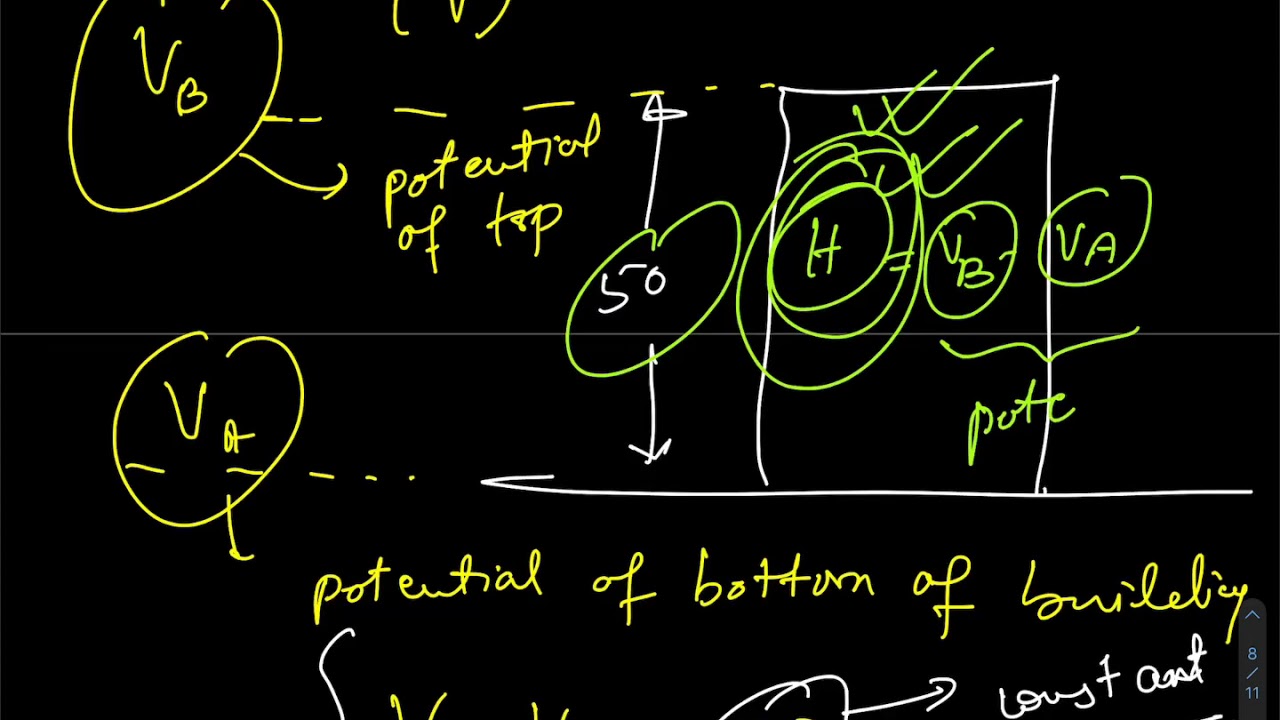 (V)
V_B
potential
of top
50
H = V_B - V_A
pote
V_A
potential of bottom of building
constant
8
/
11